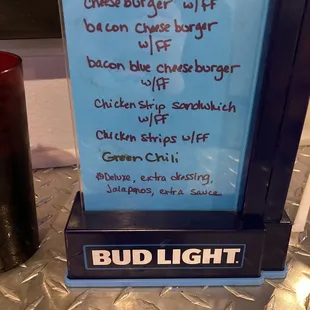 cheeseburger w/FF
bacon cheese burger
w/FF
bacon blue cheeseburger
w/FF
Chicken strip sandwhich
w/FF
Chicken Strips w/FF
Green Chili
Deluxe, extra dressing,
Jalapenos, extra sauce
BUD LIGHT